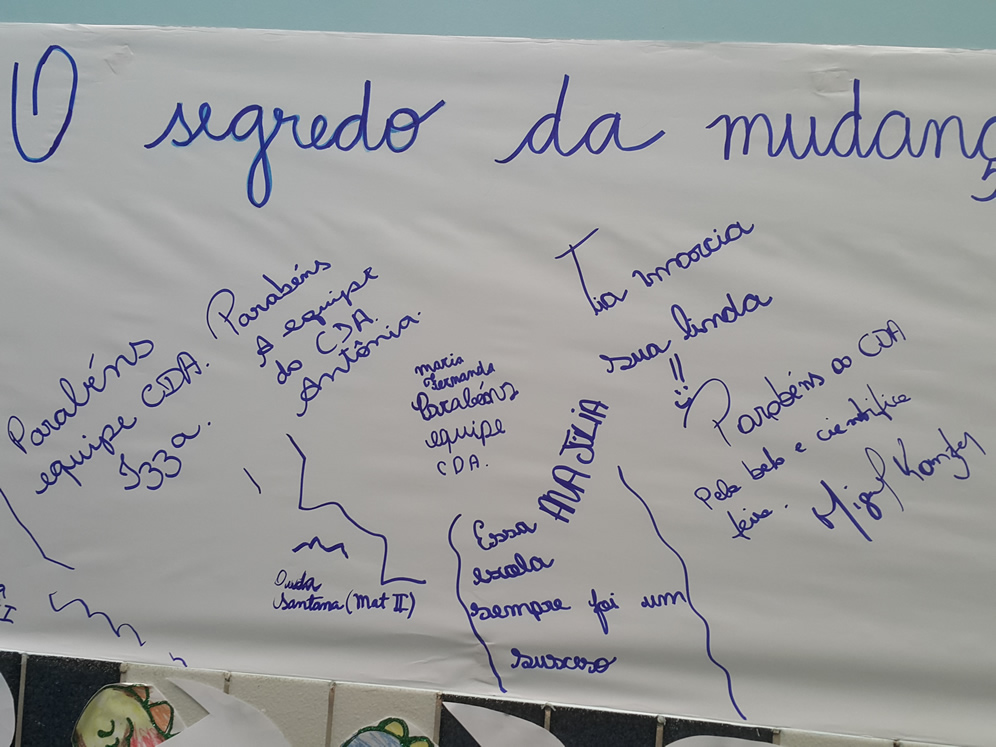 O segredo da mudanç
Parabéns
equipe CDA.
Izza.
Parabéns
A equipe
do CDA.
Antônia.
maria
fernanda
Parabéns
equipe
CDA.
Tia marcia
sua linda
!!
:)
ANA JÚLIA
Essa
escola
sempre foi um
sucesso
Parabéns ao CDA
Pela bela e cientifica
feira.
Miguel
Duda
Santana (Mat II)
I